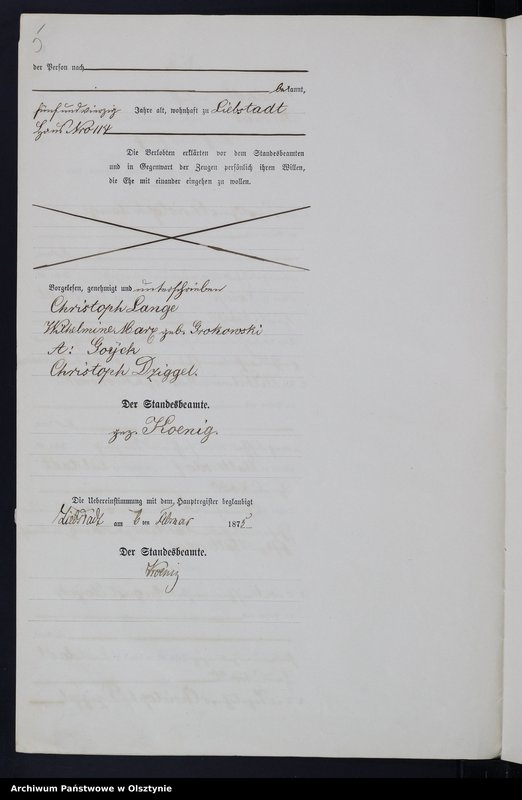 der Person nach
bekannt,
fünfundvierzig Jahre alt, wohnhaft zu Liebstadt
Haus Nro 114
Die Verlobten erklärten vor dem Standesbeamten
und in Gegenwart der Zeugen persönlich ihren Willen,
die Ehe mit einander eingehen zu wollen.
Vorgelesen, genehmigt und unterschrieben
Christoph Lange
Wilhelmine Marx geb. Grokowski
A: Goÿch
Christoph Dziggel.
Der Standesbeamte.
gez. Koenig.
Die Uebereinstimmung mit dem Hauptregister beglaubigt
Liebstadt am 6 ten Februar 1875
Der Standesbeamte.
Koenig
Archiwum Państwowe w Olsztynie